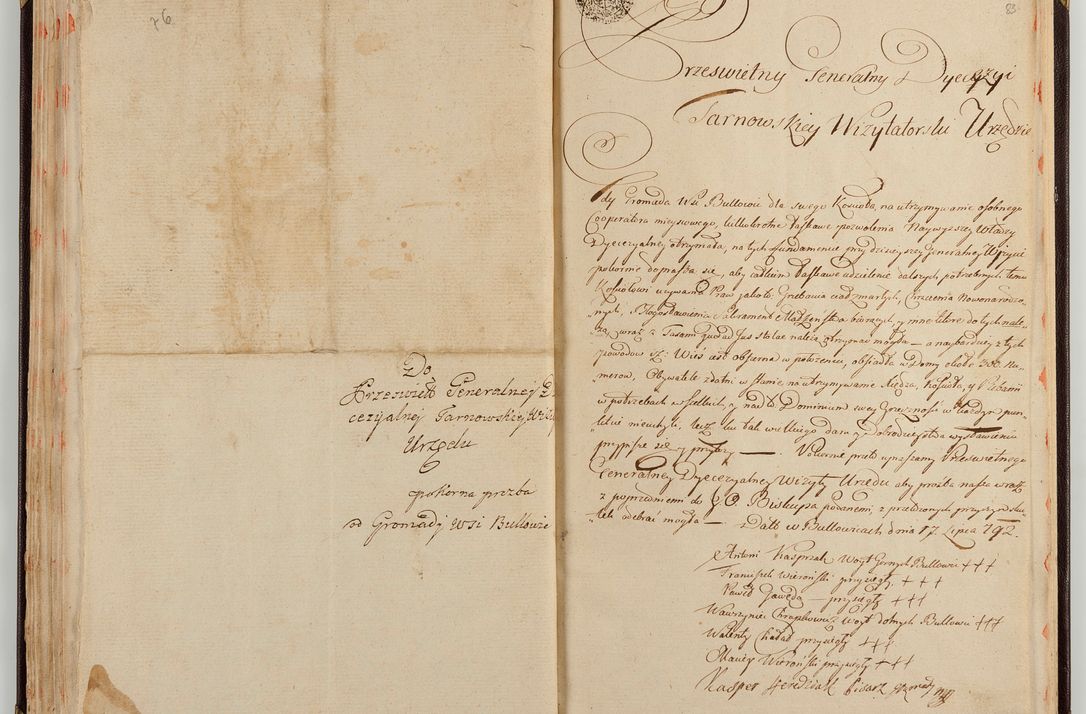 76
Do
Przeswiett Generalney
cezyialney Tarnowskiey
Urzędu
pokorna prozba
od Gromady wsi Bullowic
83
Przeswietny Generalny Dyecezyi
Tarnowskiey Wizytatorski Urzędzie
Gdy Gromada Wsi Bullowic dla swego Koscioła, na utrzymywanie osobnego
Cooperatora mieyscowego, kilkokrotne łaskawe pozwolenia Naywyzszey Władzy
Dyecezyalney otrzymała, na tych fundamencie przy dzisieyszey Generalney Wizycie
pokornie doprasza się, aby łaskawe udzielenie dalszych potrzebnych temu
Kosciołowi uzywania Praw jakoto, Grzebania ciał zmarłych, Chrzcenia Nowonarodzo-
nych, Błogosławienia Sakrament Małżeństwa biorących, y inne które do tych nale-
zą, wraz z Taxami quoad Jus Stolae otrzymać mogła — a naybardziey z tych
powodow iż: Wieś iest obszerna w położeniu, obsiadła w Domy około 300 Nu-
merow, Obywatele zdatni w stanie na utrzymywanie Xiędza, Koscioła, y
w potrzebach wszelkich, y nad to Dominium swey w kazdym pun-
kcie lecz tak wielkiego daru y Dobrodzieystwa wystawieniu
przypisze się y — Pokornie przeto upraszamy Przeswietnego
Generalney Dyecezyalney Wizyty Urzedu aby prozba nasza wraz
z poprzedniemi do Biskupa podanemi, z przełozonych przyczyn sku-
tek odebrać mogła — Datt w Bullowicach dnia 17 Lipca 792.
Antoni Kasprzak Woyt Gornych Bullowic +++
Franciszek Wieroński przysięgły +++
Paweł Gawęda — przysięgły +++
Wawrzyniec Chrapkowicz Woyt dolnych Bullowic +++
Walenty Chałat przysięgły +++
Maciey Wieroński przysięgły +++
Kasper Pisarz Gromady mp